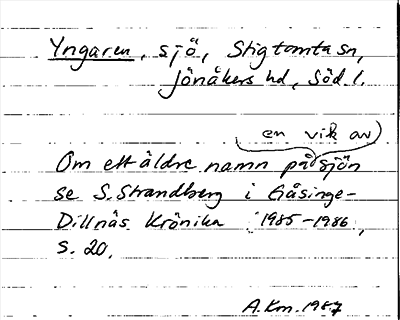 Yngaren, sjö, Stigtomta sn,
Jönåkers hd, Söd. l.
(en vik av)
Om ett äldre namn på sjön
se S. Strandberg i Gåsinge-
Dillnäs Krönika 1985-1986,
s. 20.
A.Km. 1987